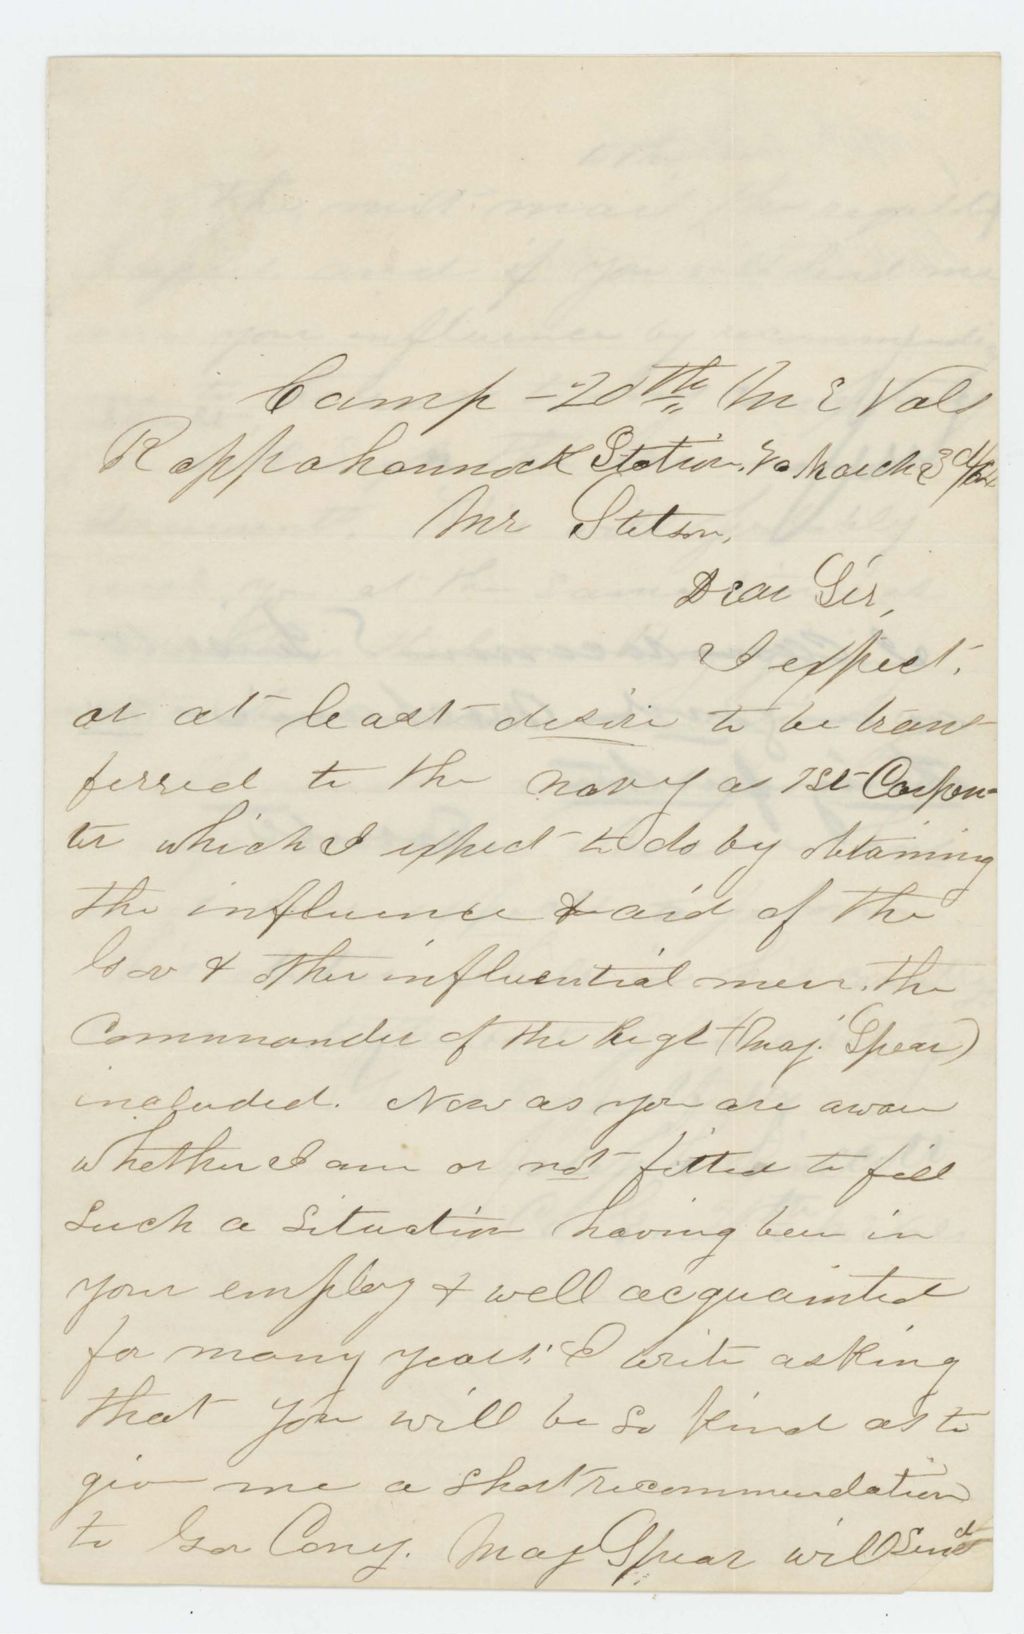 Camp - 20th M E Vols
Rappahannock Station, Va March 3d /64
Mr Stetson,
Dear Sir,
I expect,
or at least desire to be trans
ferred to the navy as 1st Carpen-
ter which I expect to do by obtaining
the influence & aid of the
Gov & other influential men. The
Commander of the Regt (Maj. Spear)
included. Now as you are aware
whether I am or not fitted to fill
such a situation having been in
your employ & well acquainted
for many years, I write asking
that you will be so kind as to
give me a short recommendation
to Gov Cony. Maj Spear will send